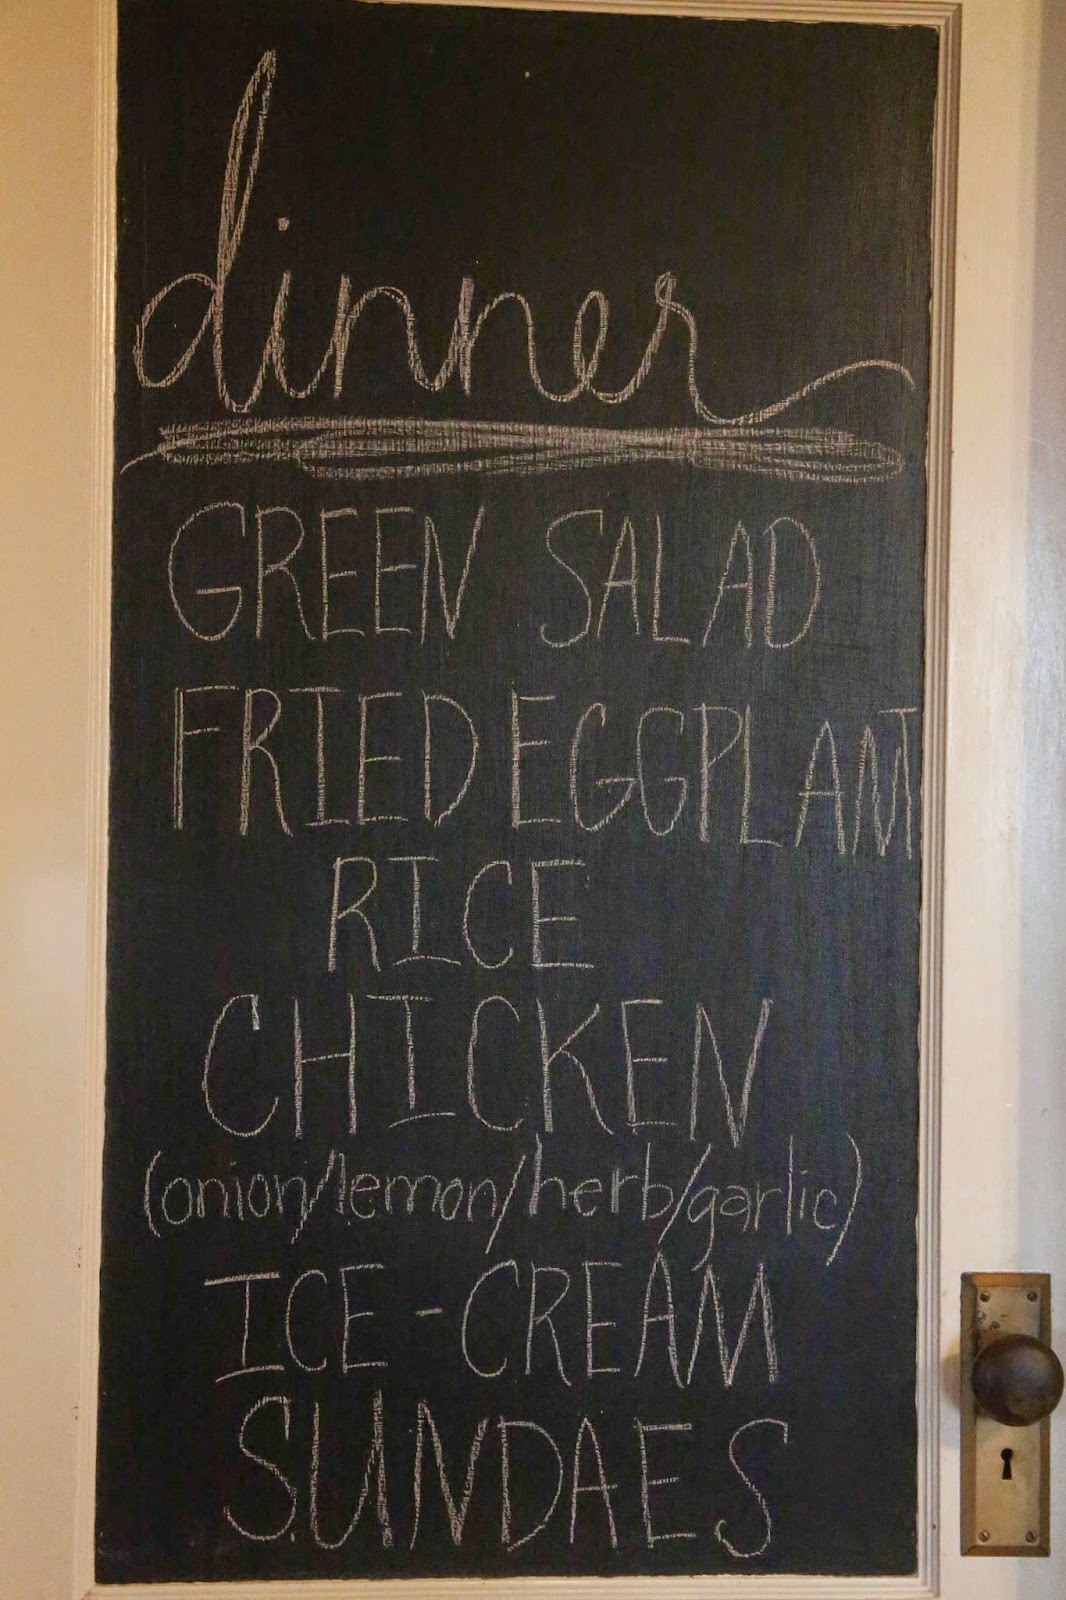 dinner
GREEN SALAD
FRIED EGGPLANT
RICE
CHICKEN
(onion/lemon/herb/garlic)
ICE-CREAM
SUNDAES